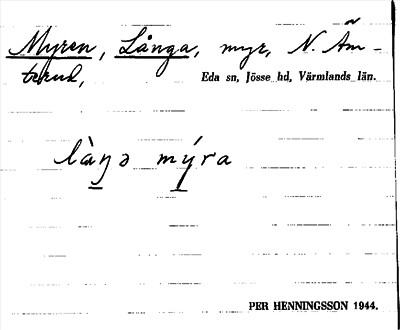 Myren, Långa, myr, N. Åm-
terud,
Eda sn, Jösse hd, Värmlands län.
làŋə mýra
PER HENNINGSSON 1944.